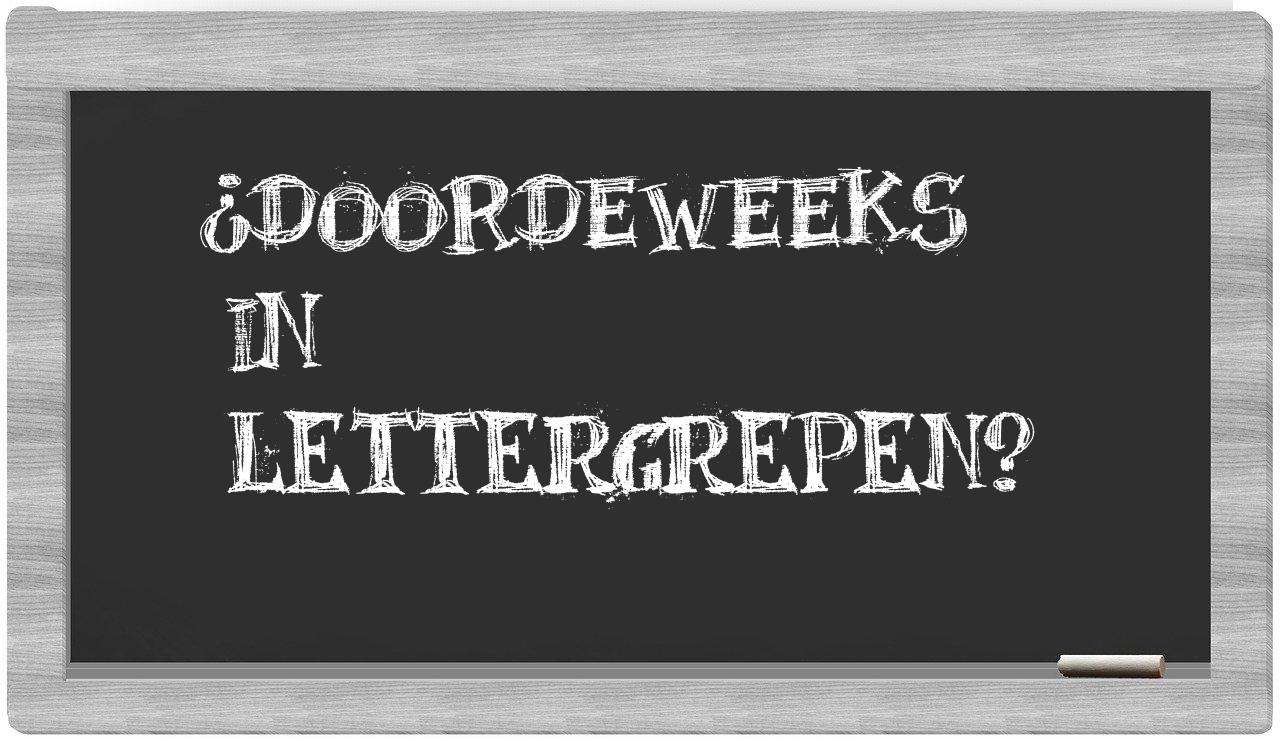 ¿DOORDEWEEKS
IN
LETTERGREPEN?